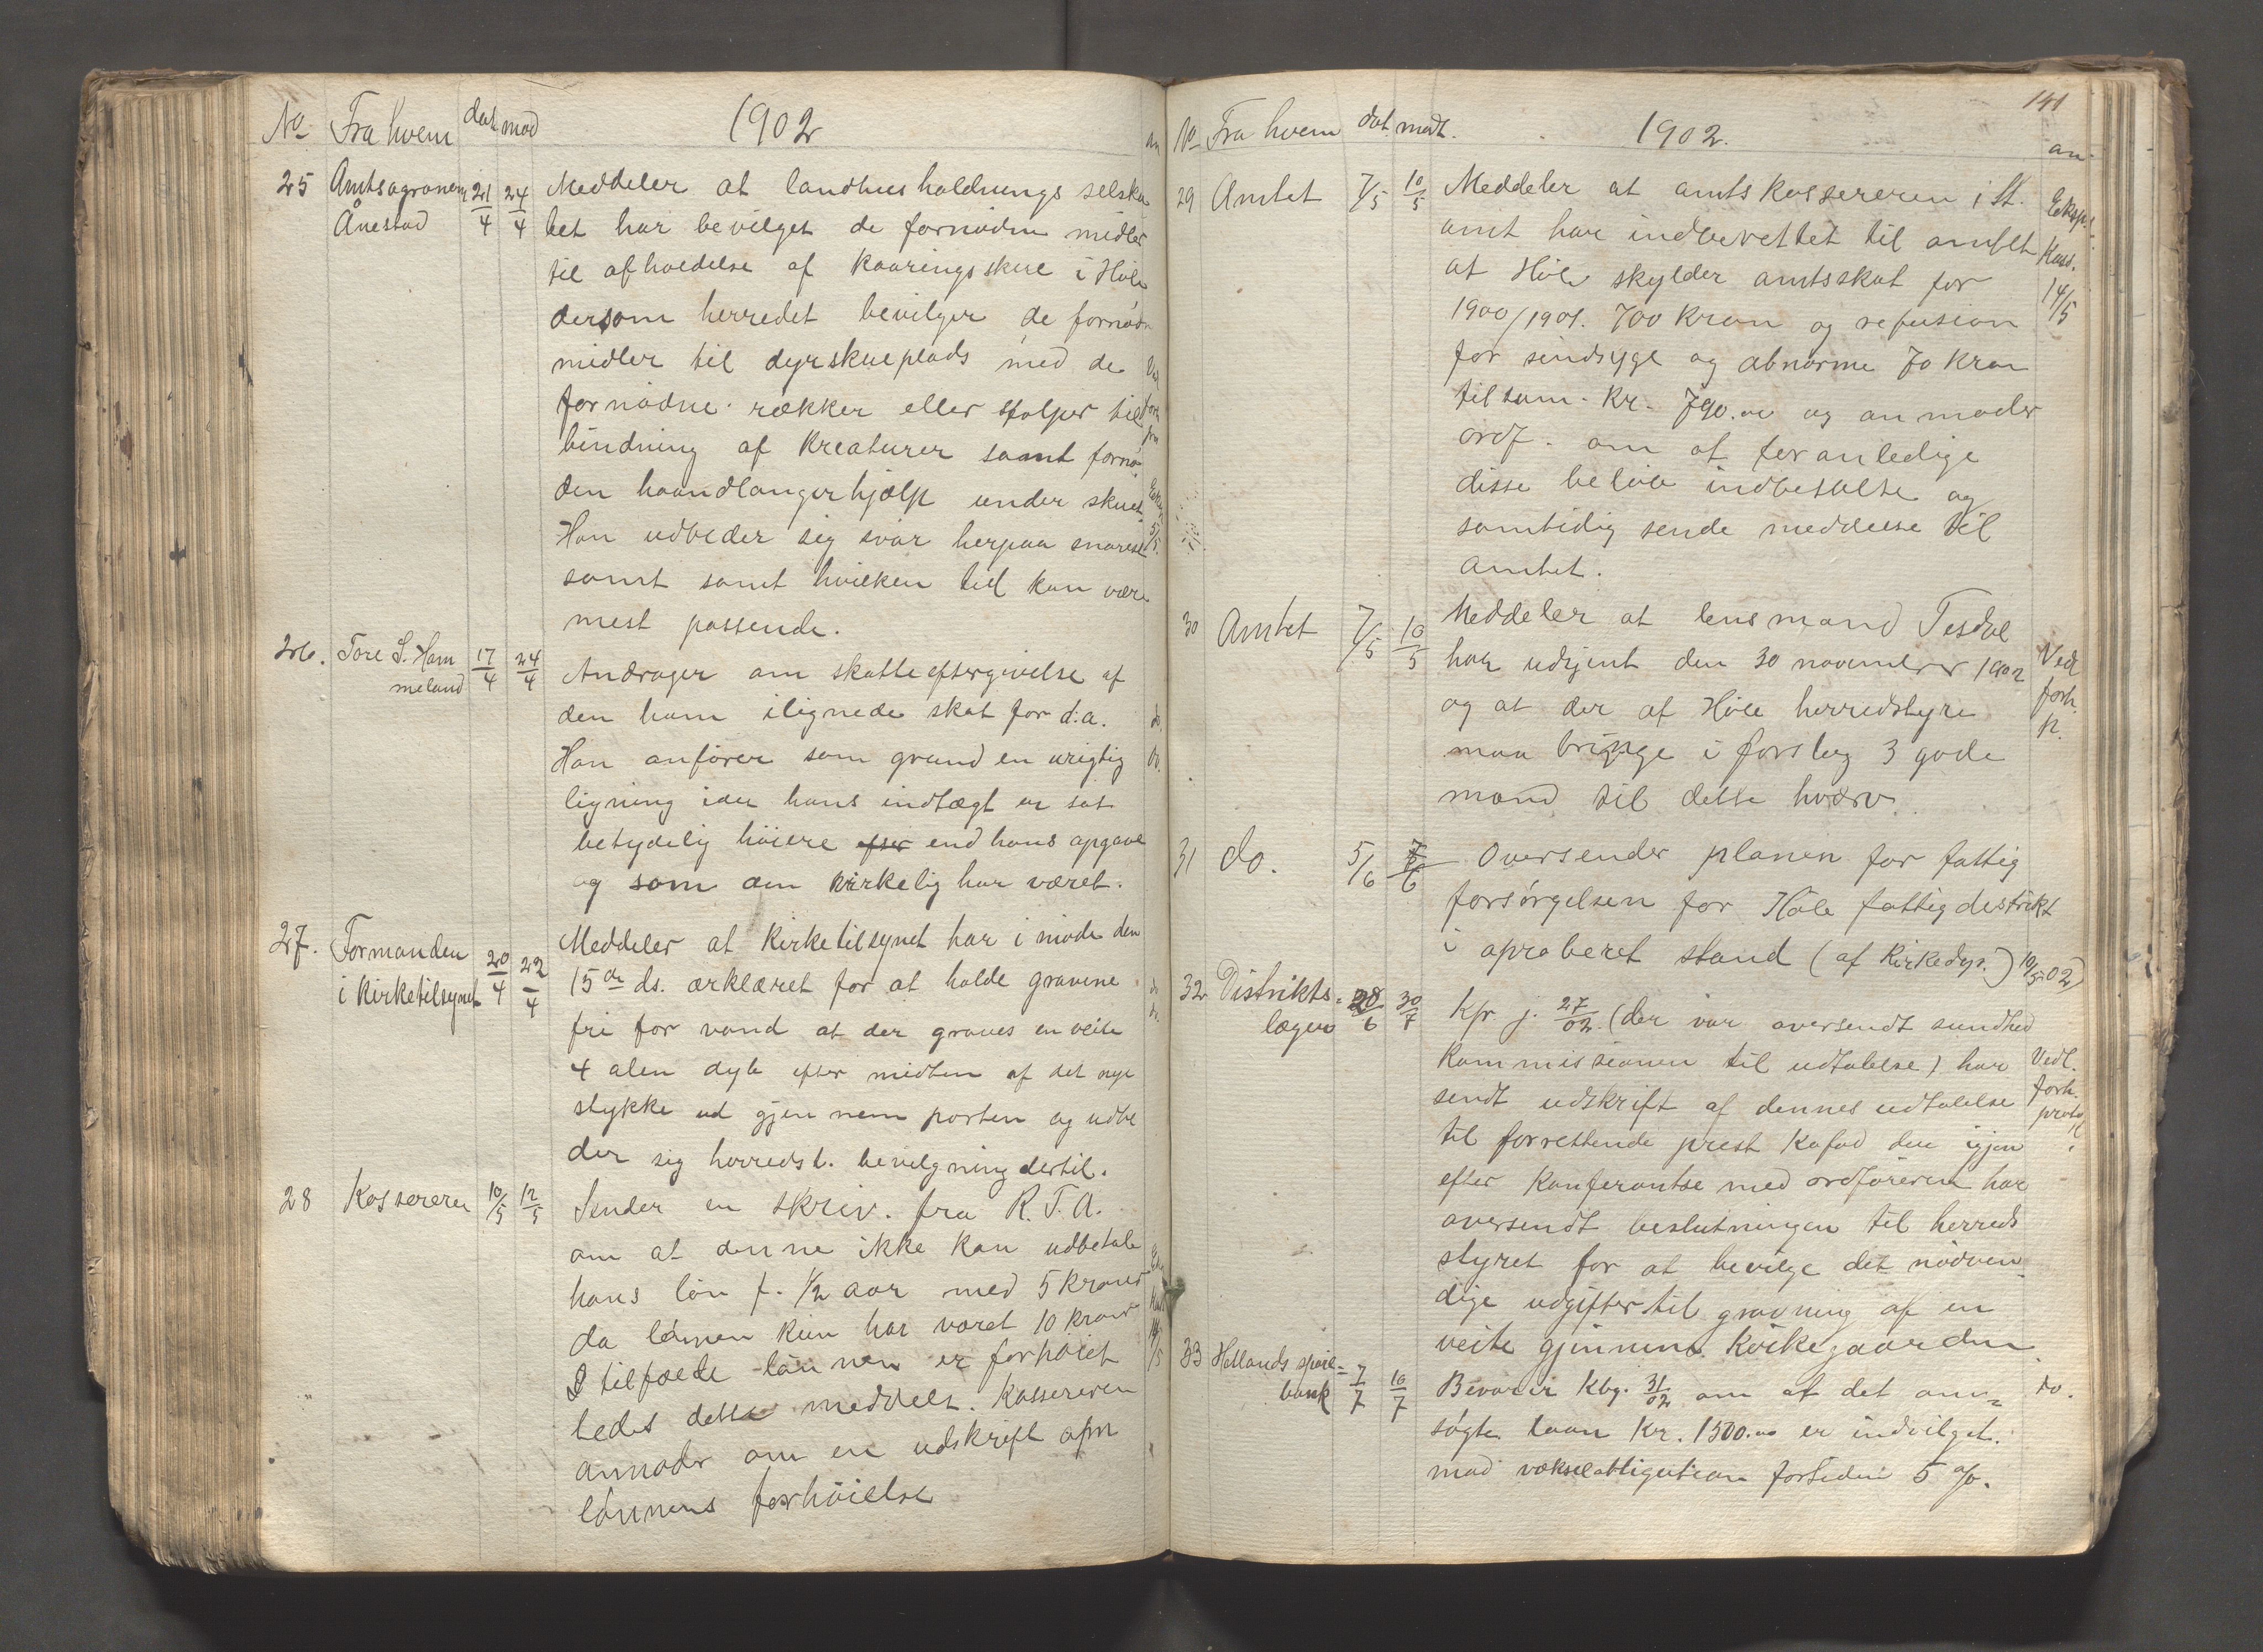 No Fra hvem dat mod 1902
25 Amtsagronom 21/4 24/4 Meddeler at landhusholdnings selska
Ånestad bet har bevilget de fornødne midler
til afholdelse af Kaaringsskue i Høle
dersom herredet bevilger de fornødn
midler til dyrskueplads med de
fornødne rækker eller stolper til
binding af Kreaturer samt fornø
den haandlangerhjælp under skuet
Han udbeder sig svar herpaa snarest
samt samt hvilken tid kan være
mest passende.
26. Tore S. Ham 17/4 24/4 Andrager om skatteeftergivelse af
meland den ham ilignede skat for d.a.
Han anfører som grund en urigtig
ligning idet hans indtægt er sat
betydelig høiere efter end hans opgave
og som den virkelig har været.
27. Formanden 20/4 22/4 Meddeler at Kirketilsynet har i møde den
i Kirketilsynet 15de ds. ærklæret for at holde gravene
fri for vand at der graves en veite
4 alen dyb efter midten af det nye
stykke ud gjennem porten og udbe
der sig herredst. bevilgning dertil.
28 Kassereren 10/5 12/5 Sender en skriv. fra R.T.A.
om at denne ikke kan udbetale
hans løn f. 1/2 aar med 5 kroner
da lønnen kun har været 10 kroner
I tilfælde lønnen er forhøiet
bedes dette meddelt. Kassereren
anmoder om en udskrift om
lønnens forhøielse
141
No Fra hvem dat. modt. 1902. an
29 Amtet 7/5 10/5 Meddeler at amtskassereren i St. Eksp.
amt har indberettet til amtet Kass.
at Høle skylder amtsskat for 14/5
1900/1901. 700 Kroner og refusion
for sindsyge og abnorme 70 Kron
tilsam. Kr. 790.00 og anmoder
ordf. om at foranledige
disse beløb indbetalte og
samtidig sende meddelse til
amtet.
30 Amtet 7/5 10/5 Meddeler at lensmand Tesdal
har udtjent den 30 november 1902 Ved
og at der af Høle herredstyre forh.
maa bringe i forslag 3 gode p.
mænd til dette hværv.
31 do. 5/6 7/6 Oversender planen for fattig
forsørgelsen for Høle fattigdistrikt
i aproberet stand (af Kirkedep.) 10/5 02)
32 Distrikts- 28/6 30/7 Kpr j. 27/02. (der var oversendt sundhed
lægen Kommissionen til udtalelse) har Vedl.
sendt udskrift af dennes udtalelse forh.
til forrettende prest Kafod den igjen
efter Konferantse med ordføreren har
oversendt beslutningen til herreds
styret for at bevilge det nødven
dige udgifter til gravning af en
veite gjennem Kirkegaarden
33 Hetlands spare= 7/7 10/7 Bevarer Kbg. 31/02 om at det an= do.
bank søgte laan Kr. 1500.00 er indvilget.
mod vekselobligation fortiden 5 %.